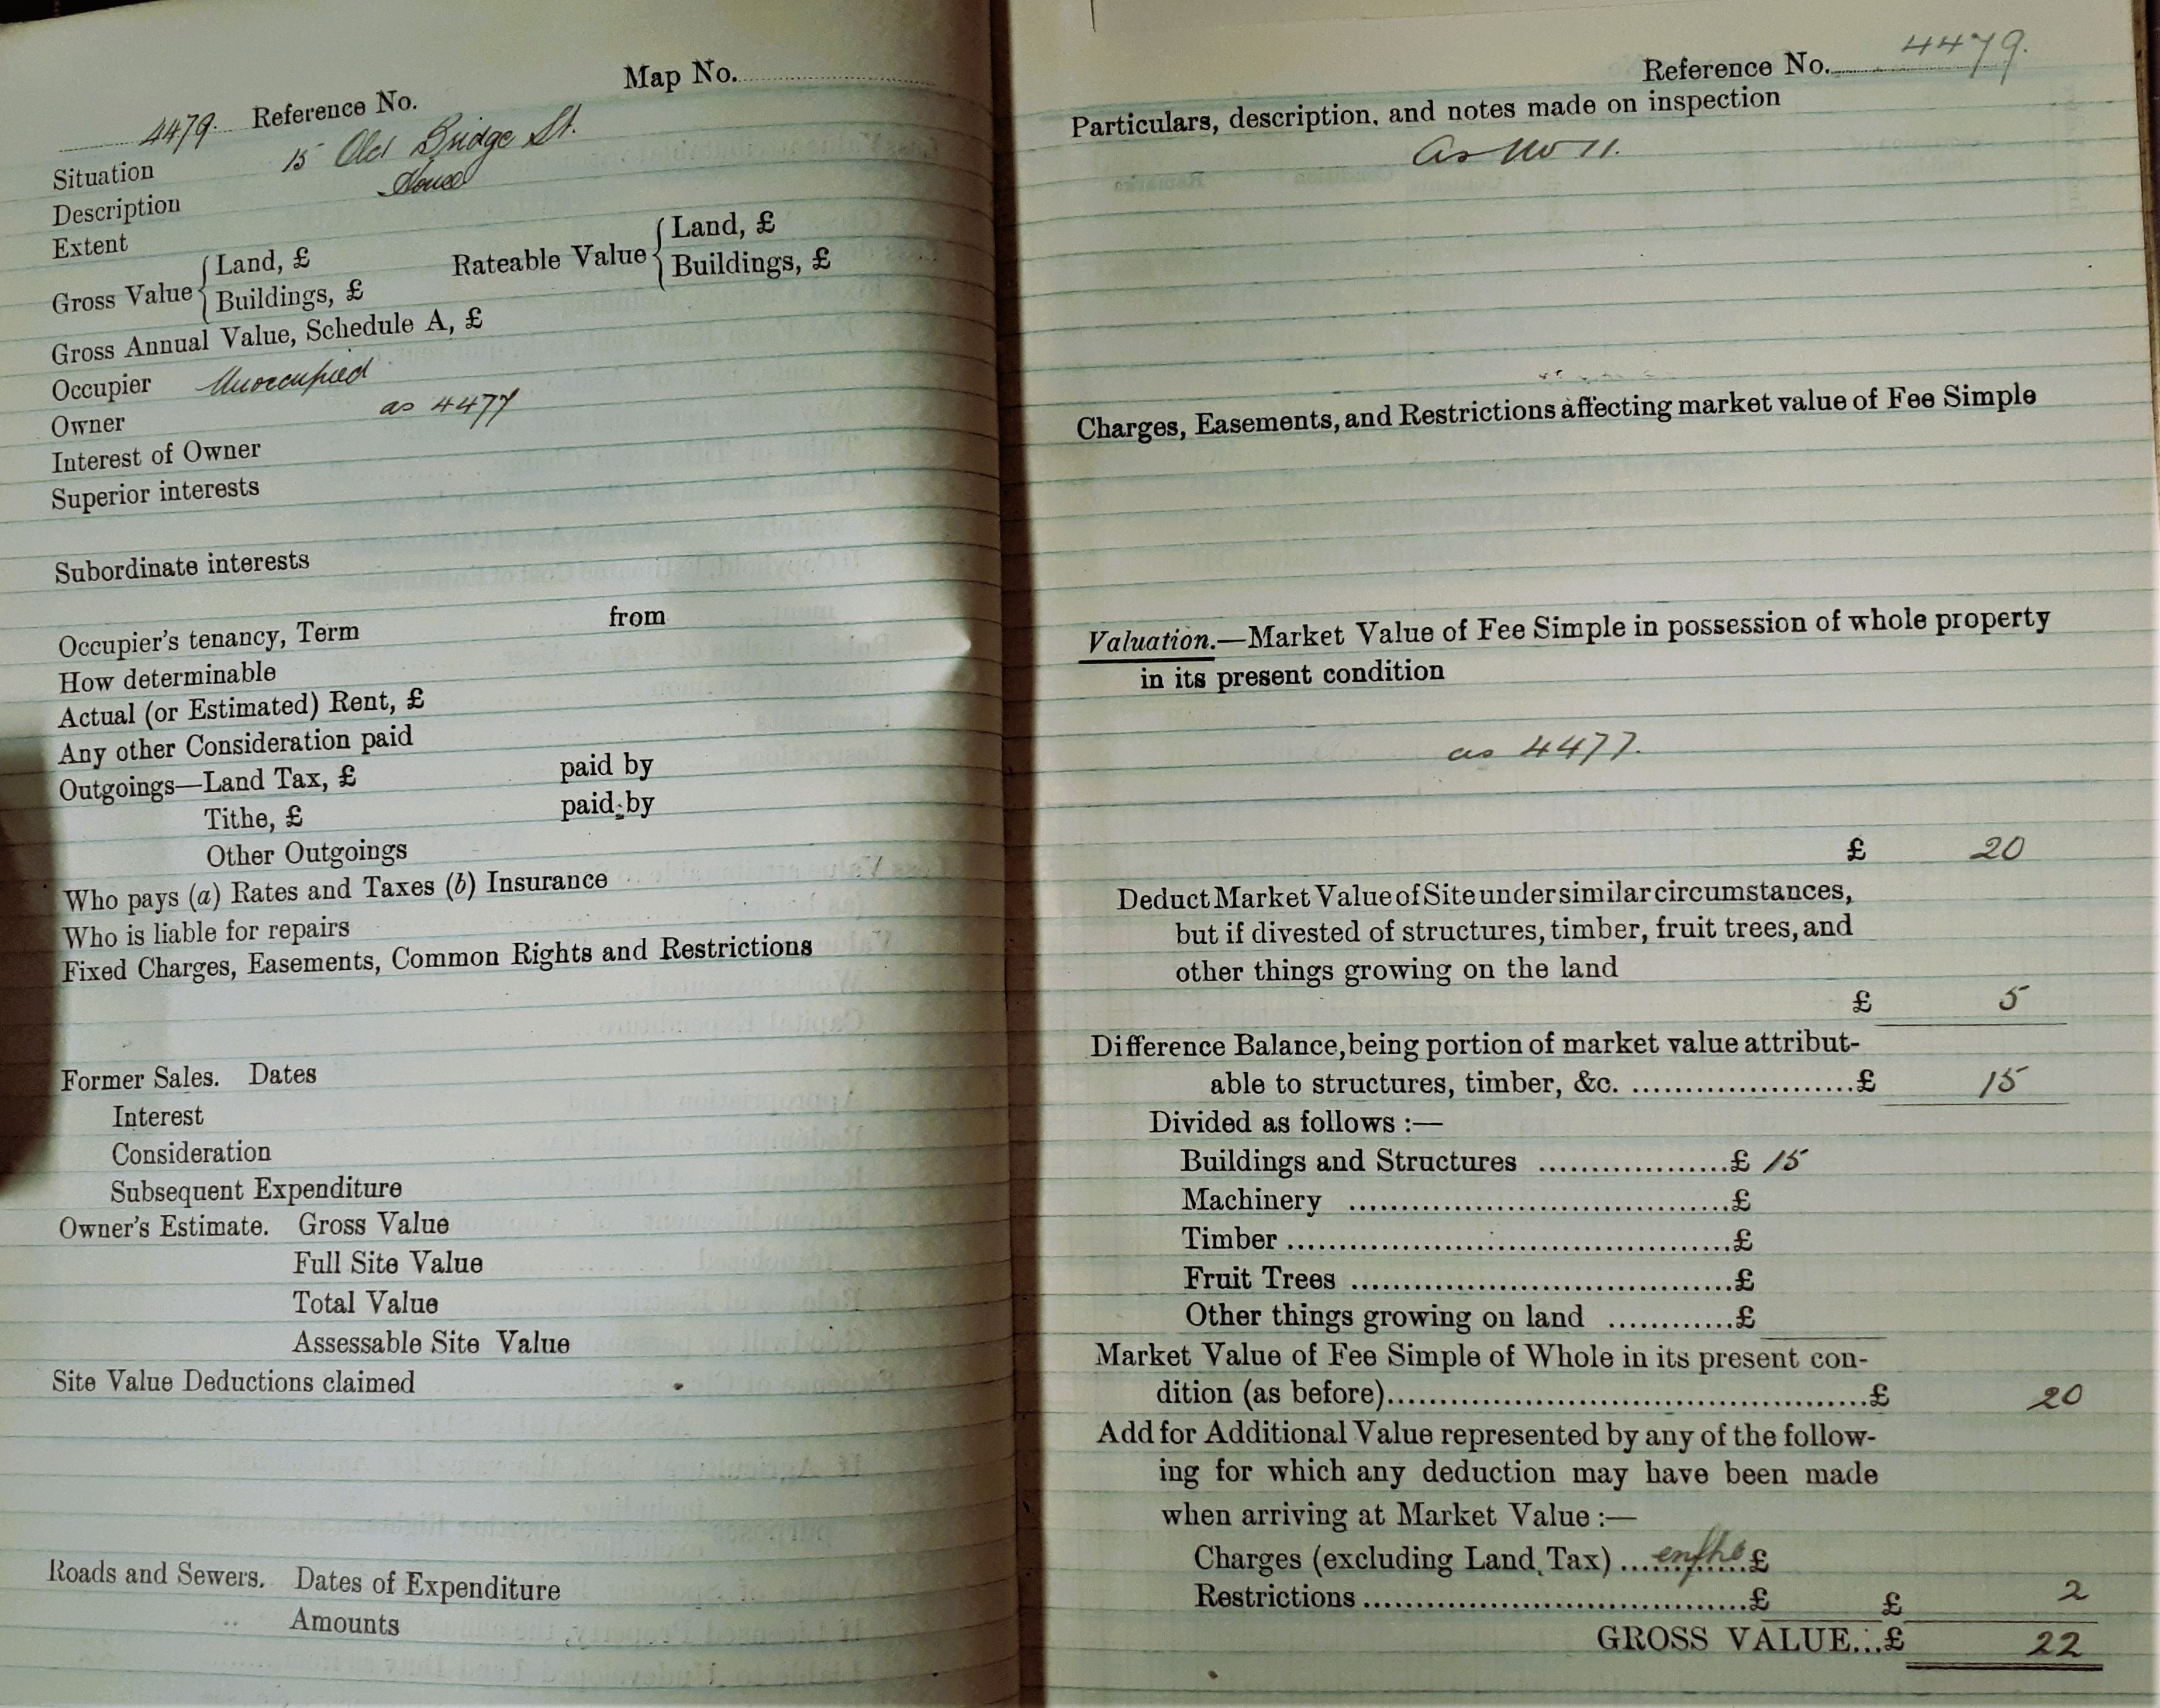 Map No.
4479. Reference No.
Situation 15 Old Bridge St.
Description House
Extent
Gross Value { Land, £ Rateable Value { Land, £
Buildings, £ Buildings, £
Gross Annual Value, Schedule A, £
Occupier Unoccupied
Owner as 4477
Interest of Owner
Superior interests
Subordinate interests
Occupier's tenancy, Term from
How determinable
Actual (or Estimated) Rent, £
Any other Consideration paid
Outgoings—Land Tax, £ paid by
Tithe, £ paid by
Other Outgoings
Who pays (a) Rates and Taxes (b) Insurance
Who is liable for repairs
Fixed Charges, Easements, Common Rights and Restrictions
Former Sales. Dates
Interest
Consideration
Subsequent Expenditure
Owner's Estimate. Gross Value
Full Site Value
Total Value
Assessable Site Value
Site Value Deductions claimed
Roads and Sewers. Dates of Expenditure
Amounts
Reference No. 4479.
Particulars, description, and notes made on inspection
as No 11.
Charges, Easements, and Restrictions affecting market value of Fee Simple
Valuation.—Market Value of Fee Simple in possession of whole property
in its present condition
as 4477.
£ 20
Deduct Market Value of Site under similar circumstances,
but if divested of structures, timber, fruit trees, and
other things growing on the land
£ 5
Difference Balance, being portion of market value attribut-
able to structures, timber, &c. ......................£ 15
Divided as follows :—
Buildings and Structures ...................£ 15
Machinery .....................................£
Timber ...........................................£
Fruit Trees .....................................£
Other things growing on land ............£
Market Value of Fee Simple of Whole in its present con-
dition (as before)...............................................£ 20
Add for Additional Value represented by any of the follow-
ing for which any deduction may have been made
when arriving at Market Value :—
Charges (excluding Land Tax) ............£
Restrictions ......................................£ £ 2
GROSS VALUE...£ 22